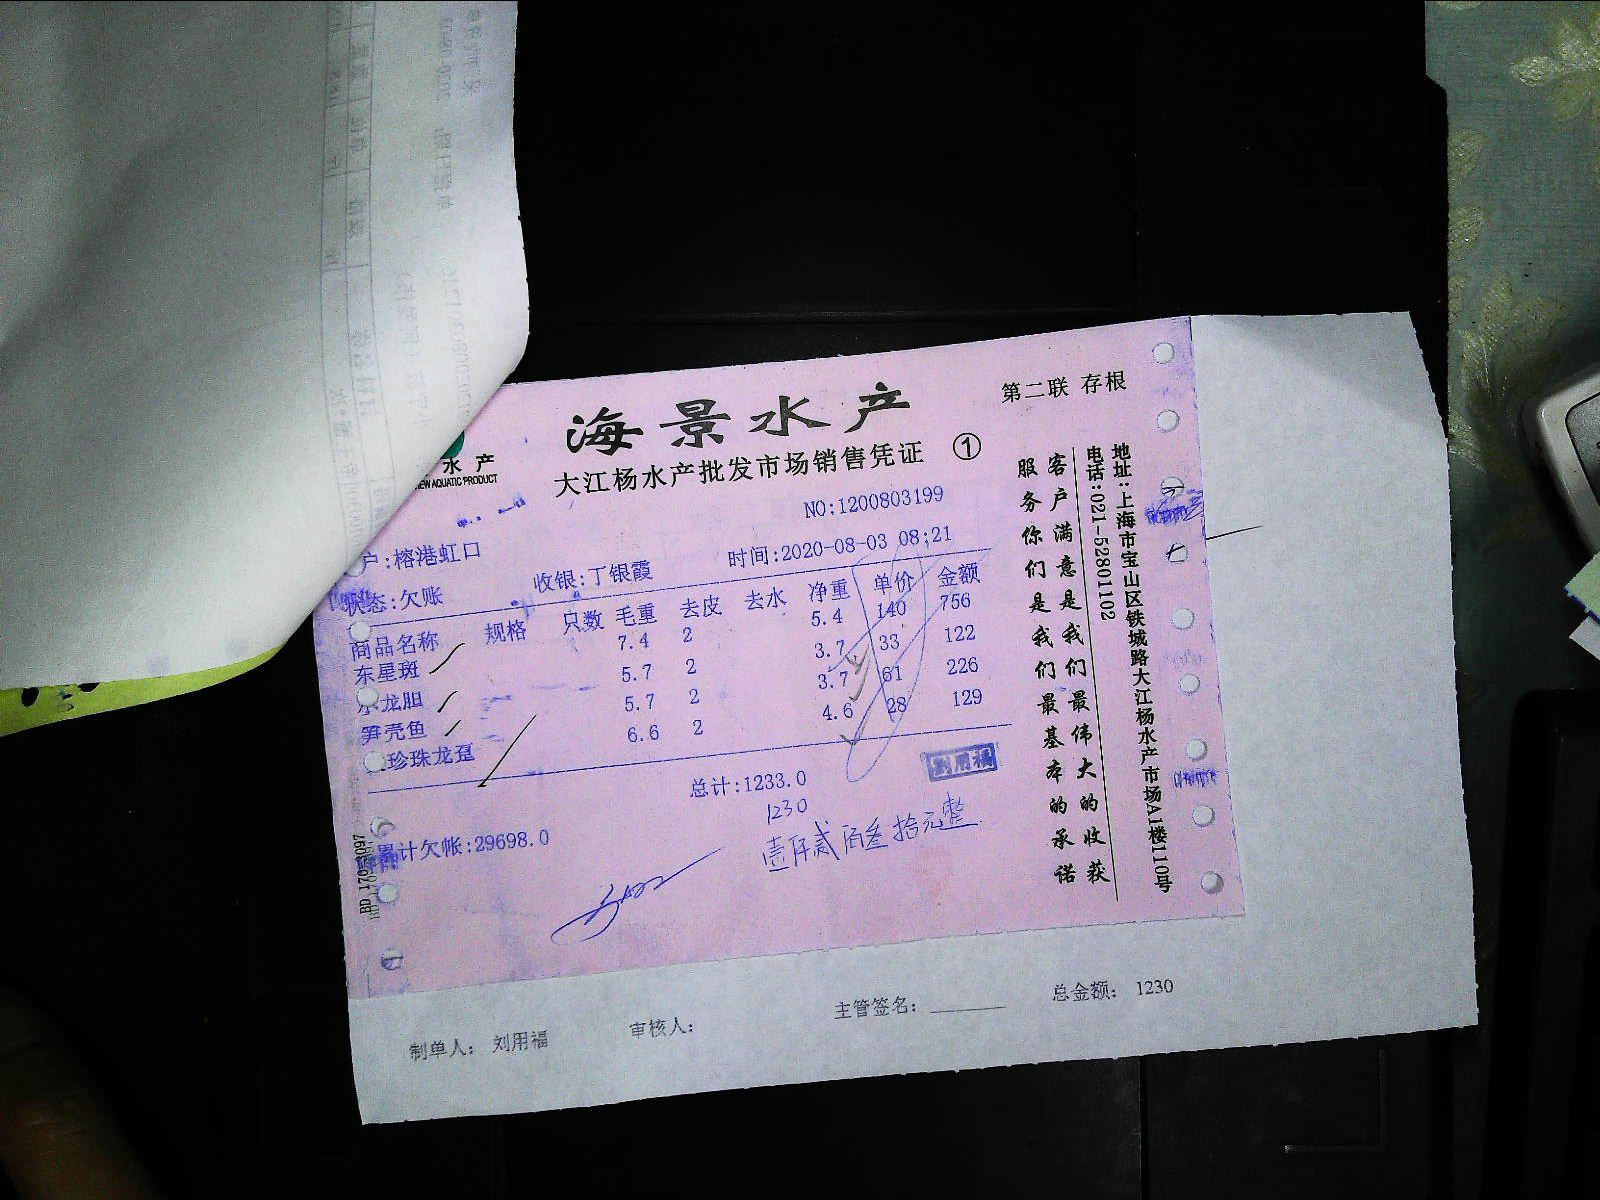 海景水产
第二联 存根
大江杨水产批发市场销售凭证 ①
水产
EW AQUATIC PRODUCT
NO:1200803199
户:榕港虹口
收银:丁银霞
时间:2020-08-03 08;21
状态:欠账
商品名称 规格 只数 毛重 去皮 去水 净重 单价 金额
东星斑 7.4 2 5.4 140 756
龙胆 5.7 2 3.7 33 122
笋壳鱼 5.7 2 3.7 61 226
珍珠龙趸 6.6 2 4.6 28 129
总计:1233.0
刘用福
1230
累计欠帐:29698.0
壹仟贰佰叁拾元整
客户满意是我们最伟大的收获
服务你们是我们最基本的承诺
地址:上海市宝山区铁城路大江杨水产市场A1楼110号
电话:021-52801102
制单人: 刘用福
审核人:
主管签名:
总金额: 1230